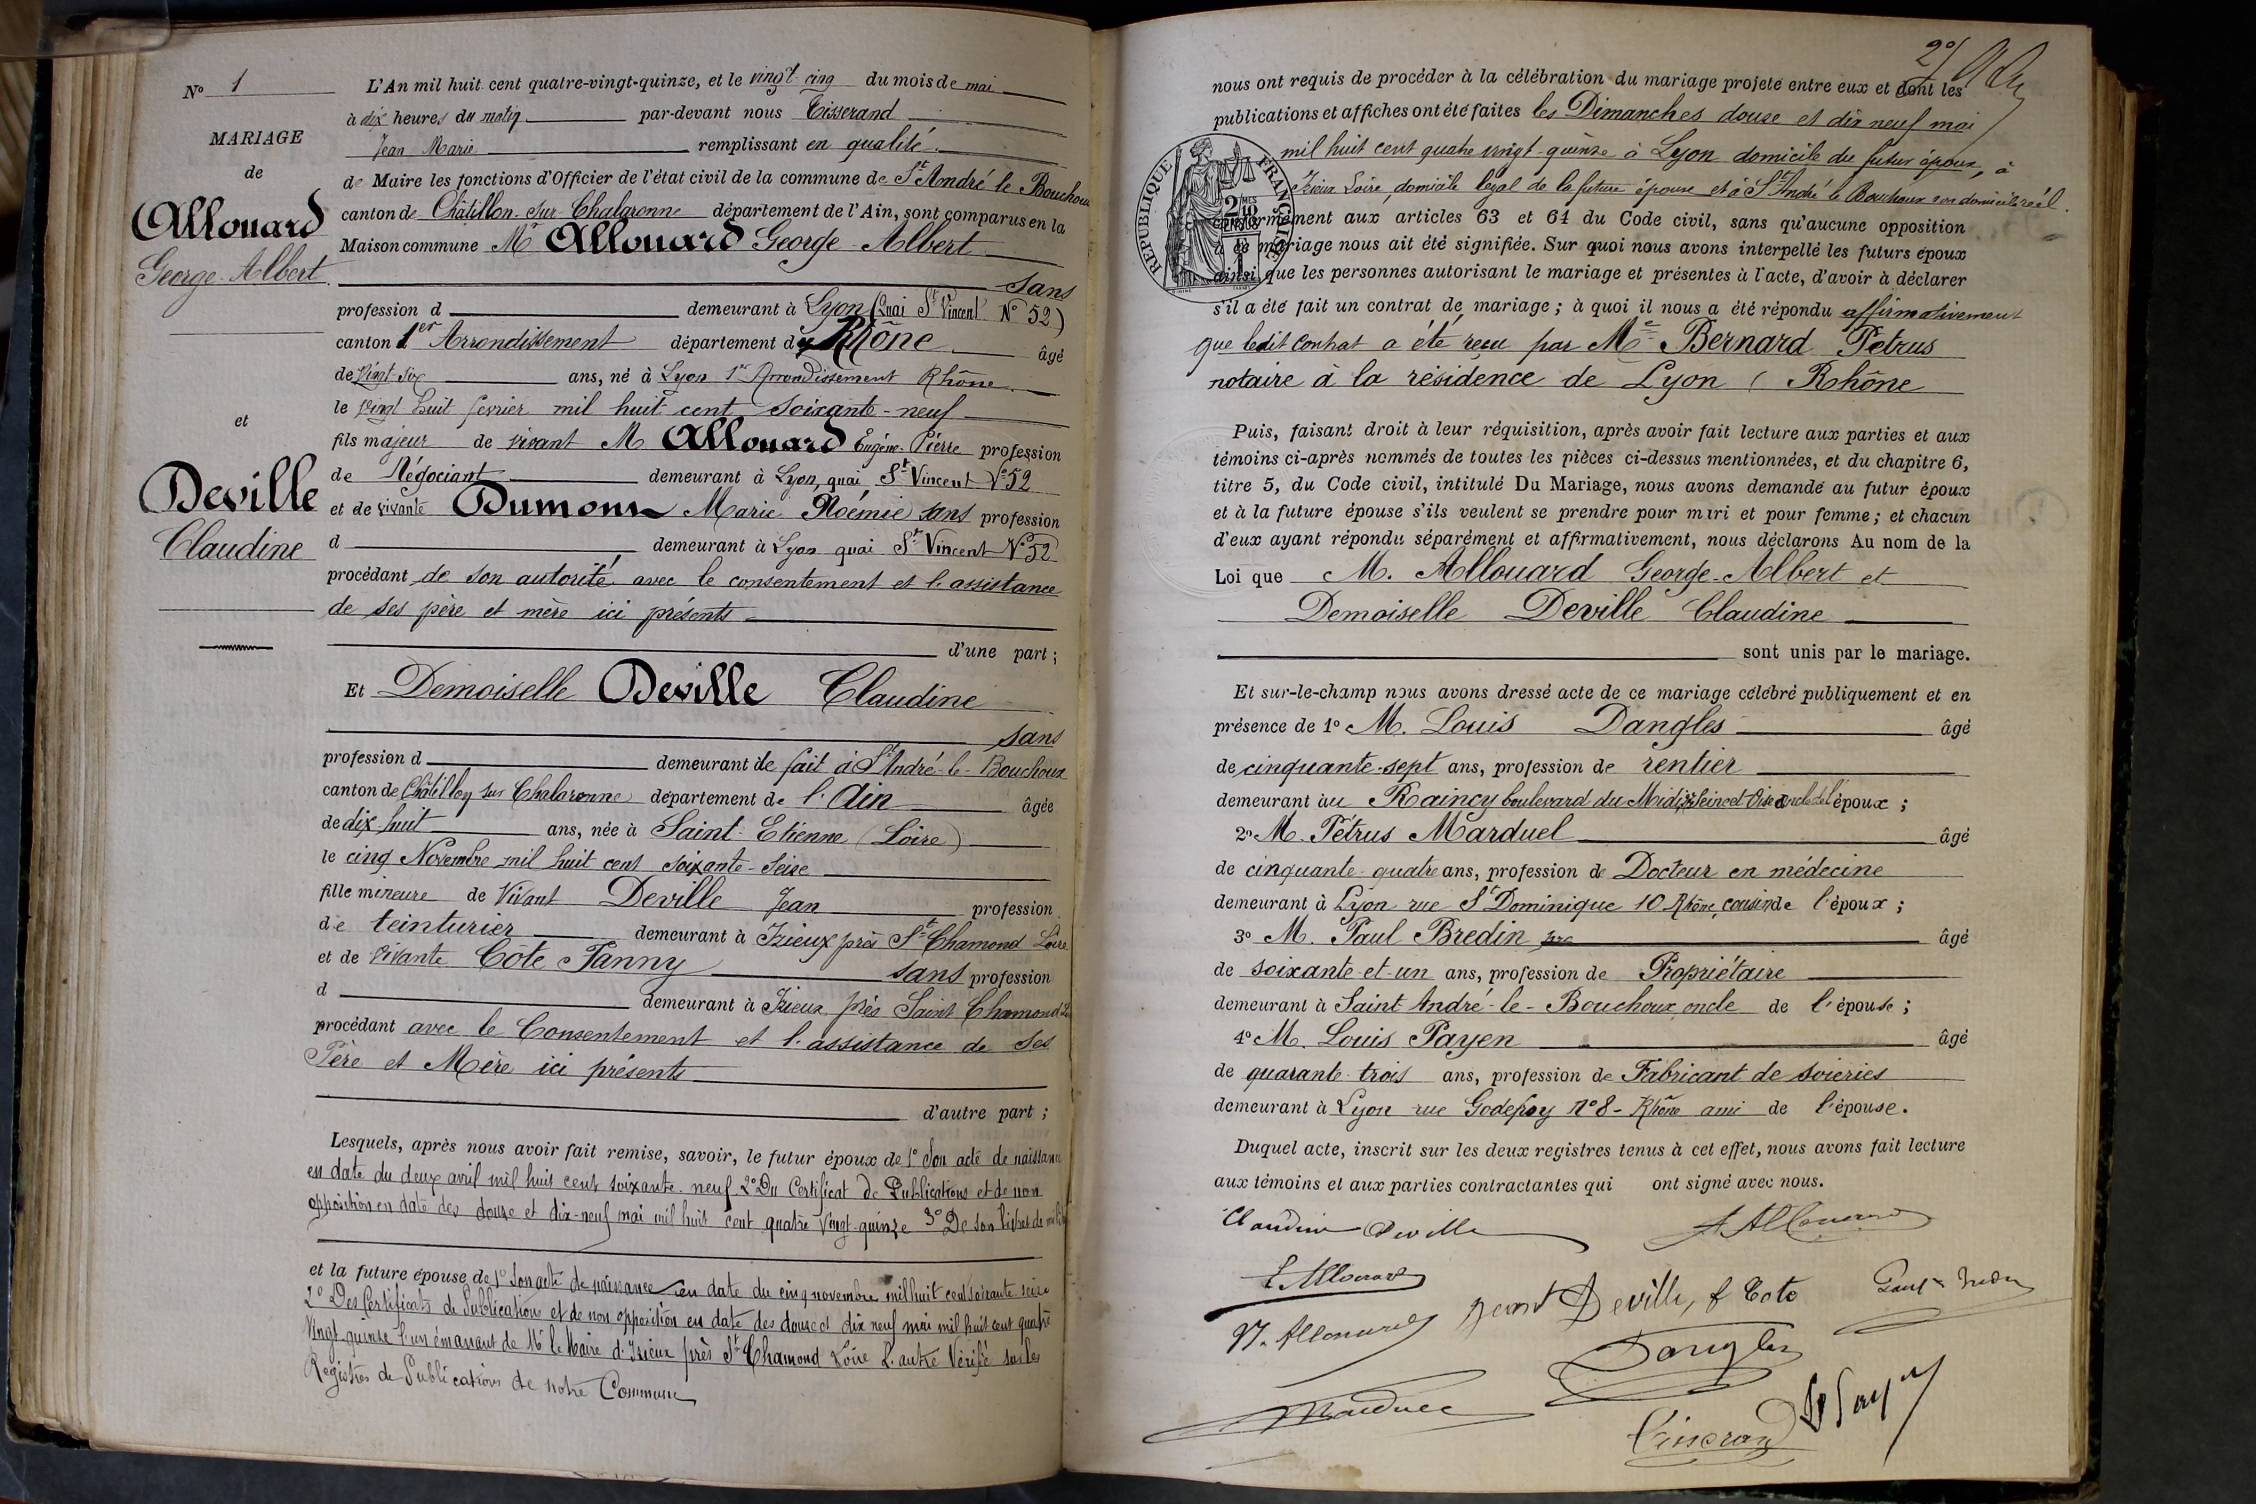 N° 1
MARIAGE
de
Allouard
George-Albert
et
Deville
Claudine
L'An mil huit cent quatre-vingt-quinze, et le vingt-cinq du mois de mai
à dix heures du matin par-devant nous Tisserand
Jean Marie remplissant en qualité
de Maire les fonctions d'Officier de l'état civil de la commune de St André le Bouchoux
canton de Châtillon-sur-Chalaronne département de l'Ain, sont comparus en la
Maison commune Mr Allouard George-Albert
sans
profession d demeurant à Lyon (Quai St Vincent N° 52)
canton 1er Arrondissement département du Rhône âgé
de vingt six ans, né à Lyon 1er Arrondissement Rhône
le vingt huit fevrier mil huit cent soixante-neuf
fils majeur de vivant M Allouard Eugène-Pierre profession
de Négociant demeurant à Lyon, quai St Vincent N° 52
et de vivante Dumont Marie Noémie sans profession
d demeurant à Lyon quai St Vincent N° 52
procédant de son autorité avec le consentement et l'assistance
de ses père et mère ici présents
d'une part ;
Et Demoiselle Deville Claudine
sans
profession d demeurant de fait à St André-le-Bouchoux
canton de Châtillon sur Chalaronne département de l'Ain âgée
de dix huit ans, née à Saint-Etienne (Loire)
le cinq Novembre mil huit cent soixante-seize
fille mineure de vivant Deville Jean profession
de teinturier demeurant à Izieux près St Chamond Loire
et de vivante Côte Fanny sans profession
d demeurant à Izieux près Saint Chamond
procédant avec le Consentement et l'assistance de ses
Père et Mère ici présents
d'autre part ;
Lesquels, après nous avoir fait remise, savoir, le futur époux de 1° Son acte de naissance
en date du deux avril mil huit cent soixante-neuf 2° Du Certificat de Publications et de non
opposition en date des douze et dix-neuf mai mil huit cent quatre vingt-quinze 3° De son
et la future épouse de 1° Son acte de naissance en date du cinq novembre mil huit cent soixante-seize
2° Des Certificats de Publication et de non opposition en date des douze et dix neuf mai mil huit cent quatre
Vingt-quinze l'un émanant de Mr le Maire d'Izieux près St Chamond Loire L'autre Vérifié sur les
Registres de Publications de notre Commune
2°/
nous ont requis de procéder à la célébration du mariage projeté entre eux et dont les
publications et affiches ont été faites les Dimanches douze et dix neuf mai
mil huit cent quatre vingt-quinze à Lyon domicile du futur époux, à
Izieux Loire, domicile légal de la future épouse et à St André le Bouchoux son domicile réel.
RÉPUBLIQUE FRANÇAISE
conformément aux articles 63 et 64 du Code civil, sans qu'aucune opposition
à ce mariage nous ait été signifiée. Sur quoi nous avons interpellé les futurs époux
ainsi que les personnes autorisant le mariage et présentes à l'acte, d'avoir à déclarer
s'il a été fait un contrat de mariage ; à quoi il nous a été répondu affirmativement
que ledit contrat a été reçu par Me Bernard Pétrus
notaire à la résidence de Lyon ( Rhône
Puis, faisant droit à leur réquisition, après avoir fait lecture aux parties et aux
témoins ci-après nommés de toutes les pièces ci-dessus mentionnées, et du chapitre 6,
titre 5, du Code civil, intitulé Du Mariage, nous avons demandé au futur époux
et à la future épouse s'ils veulent se prendre pour mari et pour femme ; et chacun
d'eux ayant répondu séparément et affirmativement, nous déclarons Au nom de la
Loi que M. Allouard George-Albert et
Demoiselle Deville Claudine
sont unis par le mariage.
Et sur-le-champ nous avons dressé acte de ce mariage célébré publiquement et en
présence de 1° M. Louis Dangles âgé
de cinquante-sept ans, profession de rentier
demeurant au Raincy boulevard du Midi Seine et Oise oncle de l'époux ;
2° M. Pétrus Marduel âgé
de cinquante-quatre ans, profession de Docteur en médecine
demeurant à Lyon rue St Dominique 10 Rhône, cousin de l'époux ;
3° M. Paul Bredin âgé
de soixante-et-un ans, profession de Propriétaire
demeurant à Saint André-le-Bouchoux oncle de l'épouse ;
4° M. Louis Payen âgé
de quarante-trois ans, profession de Fabricant de soieries
demeurant à Lyon rue Godefroy n° 8 - Rhône ami de l'épouse.
Duquel acte, inscrit sur les deux registres tenus à cet effet, nous avons fait lecture
aux témoins et aux parties contractantes qui ont signé avec nous.
Claudine Deville A Allouard
E Allouard
N. Allouard Jean Deville, f Cote
Dangles
Marduel
Tisserand L Payen